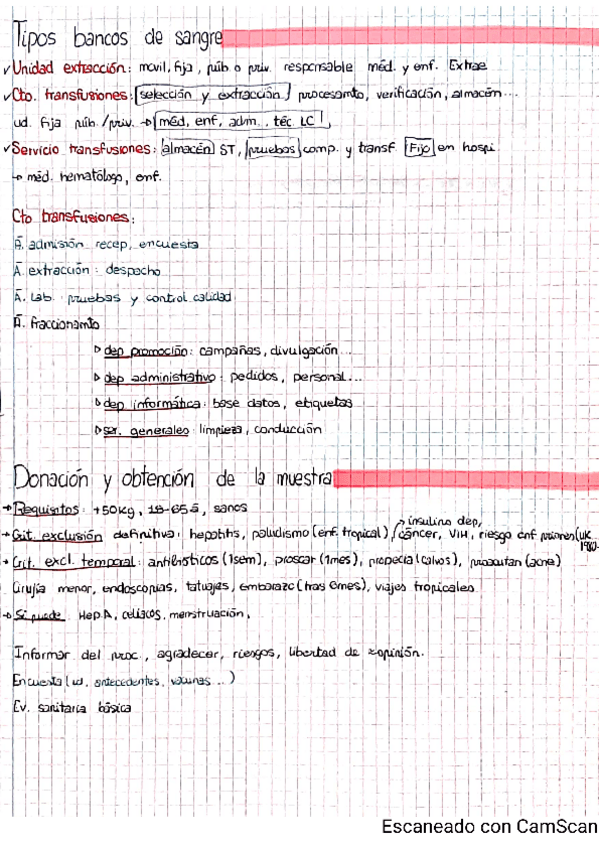 Tipos bancos de sangre
✓Unidad extracción: movil, fija, púb o priv. responsable méd. y enf. Extrae
✓Cto. transfusiones: selección y extracción / procesamto, verificación, almacén...
ud. fija púb./priv. → méd, enf, adm., téc LC
✓Servicio transfusiones: almacén ST, pruebas comp. y transf. Fijo en hospi.
→ méd. hematólogo, enf.
Cto transfusiones:
Á. admisión recep, encuesta
Á. extracción: despacho
Á. Lab. pruebas y control calidad
Á. fraccionamto
▷ dep promoción: campañas, divulgación...
▷ dep administrativo: pedidos, personal...
▷ dep informática: base datos, etiquetas
▷ ser. generales: limpieza, conducción
Donación y obtención de la muestra
→ Requisitos: +50kg, 18-65a, sanos
→ insulino dep,
→ Crit. exclusión definitiva: hepatitis, paludismo (enf. tropical), cáncer, VIH, riesgo enf priones (UK
1980-
→ Crit. excl. temporal: antibióticos (1sem), proscar (1mes), propecia (calvos), proacutan (acne)
Cirujía menor, endoscopias, tatuajes, embarazo (tras 6mes), viajes tropicales
→ Sí puede: Hep.A, celíacos, menstruación,
Informar del proc., agradecer, riesgos, libertad de opinión.
Encuesta (ud, antecedentes, vacunas...)
Ev. sanitaria básica
Escaneado con CamScan